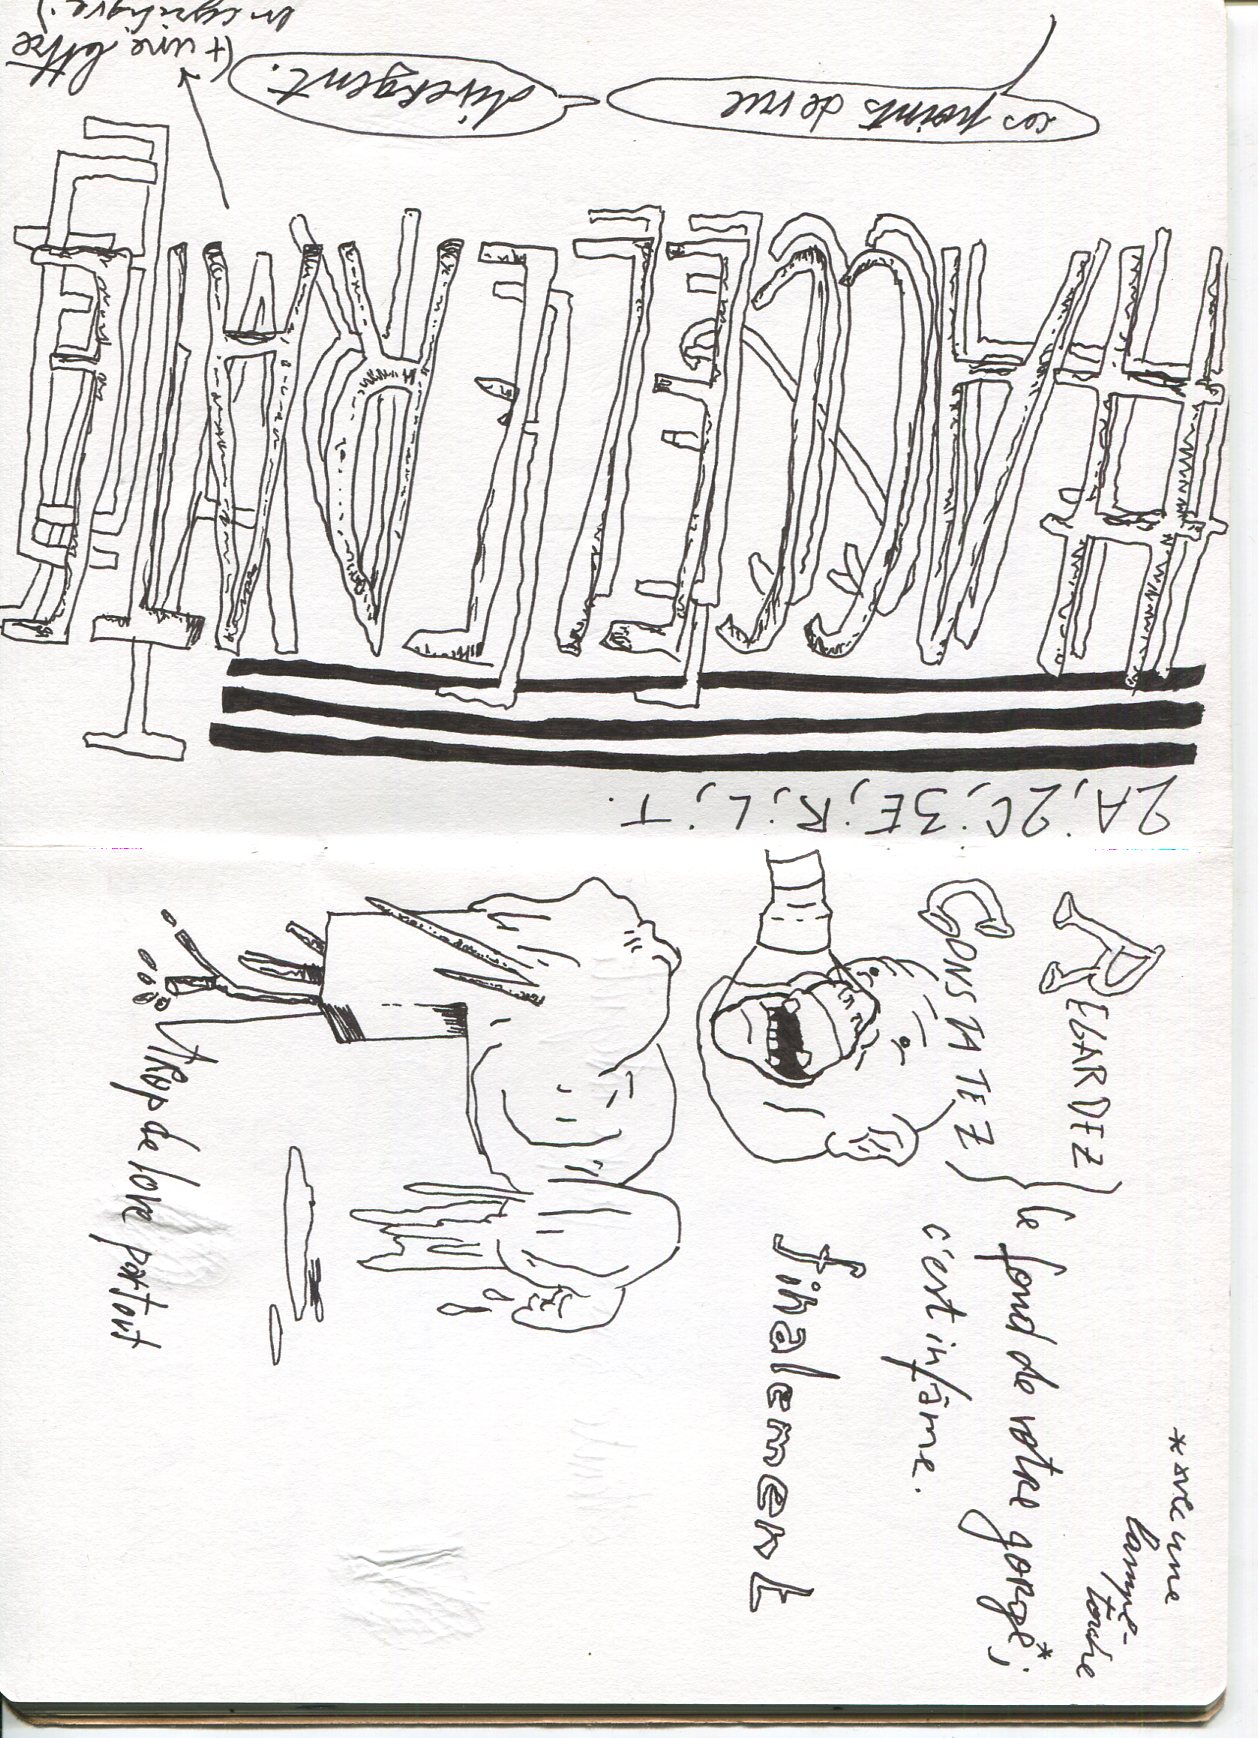 2A; 2C; 3E; R; L; T.
#ACCELERATE
ces points de vue
divergent.
(+ une lettre
en cyrillique)
*avec une
lampe-
torche
REGARDEZ
CONSTATEZ
le fond de votre gorge*;
c'est infâme.
finalement
trop de love partout